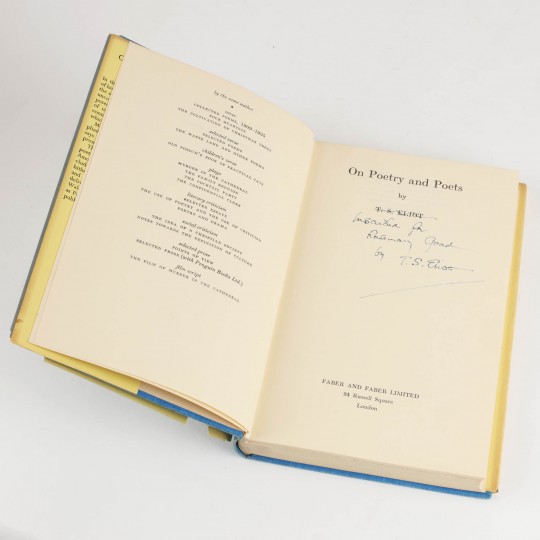 by the same author
verse
COLLECTED POEMS, 1909–1935
FOUR QUARTETS
THE CULTIVATION OF CHRISTMAS TREES
selected verse
SELECTED POEMS
THE WASTE LAND AND OTHER POEMS
children's verse
OLD POSSUM'S BOOK OF PRACTICAL CATS
plays
MURDER IN THE CATHEDRAL
THE FAMILY REUNION
THE COCKTAIL PARTY
THE CONFIDENTIAL CLERK
literary criticism
SELECTED ESSAYS
THE USE OF POETRY AND THE USE OF CRITICISM
POETRY AND DRAMA
social criticism
THE IDEA OF A CHRISTIAN SOCIETY
NOTES TOWARDS THE DEFINITION OF CULTURE
selected prose
POINTS OF VIEW
SELECTED PROSE (with Penguin Books Ltd.)
film script
THE FILM OF MURDER IN THE CATHEDRAL
On Poetry and Poets
by
T. S. ELIOT
inscribed for
Rosemary
by T. S. Eliot
FABER AND FABER LIMITED
24 Russell Square
London